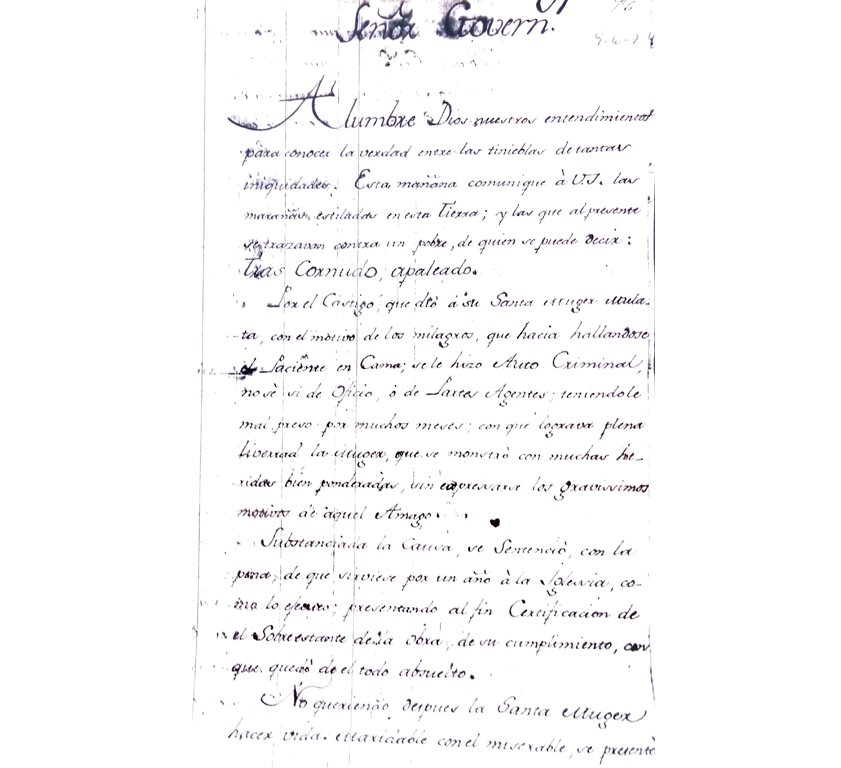 Señor Govern.
Alumbre Dios nuestros entendimientos
para conocer la verdad entre las tinieblas de tantas
iniquidades. Esta mañana comunique à V.S. las
marañas, estiladas en esta Tierra; y las que al presente
se trazavan contra un pobre, de quien se puede decir:
Tras Cornudo, apaleado.
Por el Castigo, que diò à su Santa Muger Mula-
ta, con el motivo de los milagros, que hacia hallandose
el Paciente en Cama; se le hizo Auto Criminal,
no sè si de Oficio, ò de Partes Agentes; teniendole
mal preso por muchos meses; con que lograva plena
livertad la Muger, que se monstrò con muchas he-
ridas bien ponderadas, sin expresarse los gravissimos
motivos de aquel Amago.
Substanciada la Causa, se Sentenciò, con la
pena, de que sirviese por un año à la Iglesia, co-
mo lo efectuò; presentando al fin Certificacion de
el Sobreestante de la obra, de su cumplimiento, con
que quedò de el todo absuelto.
No queriendo despues la Santa Muger
hacer vida Maridable con el miserable, se presentò